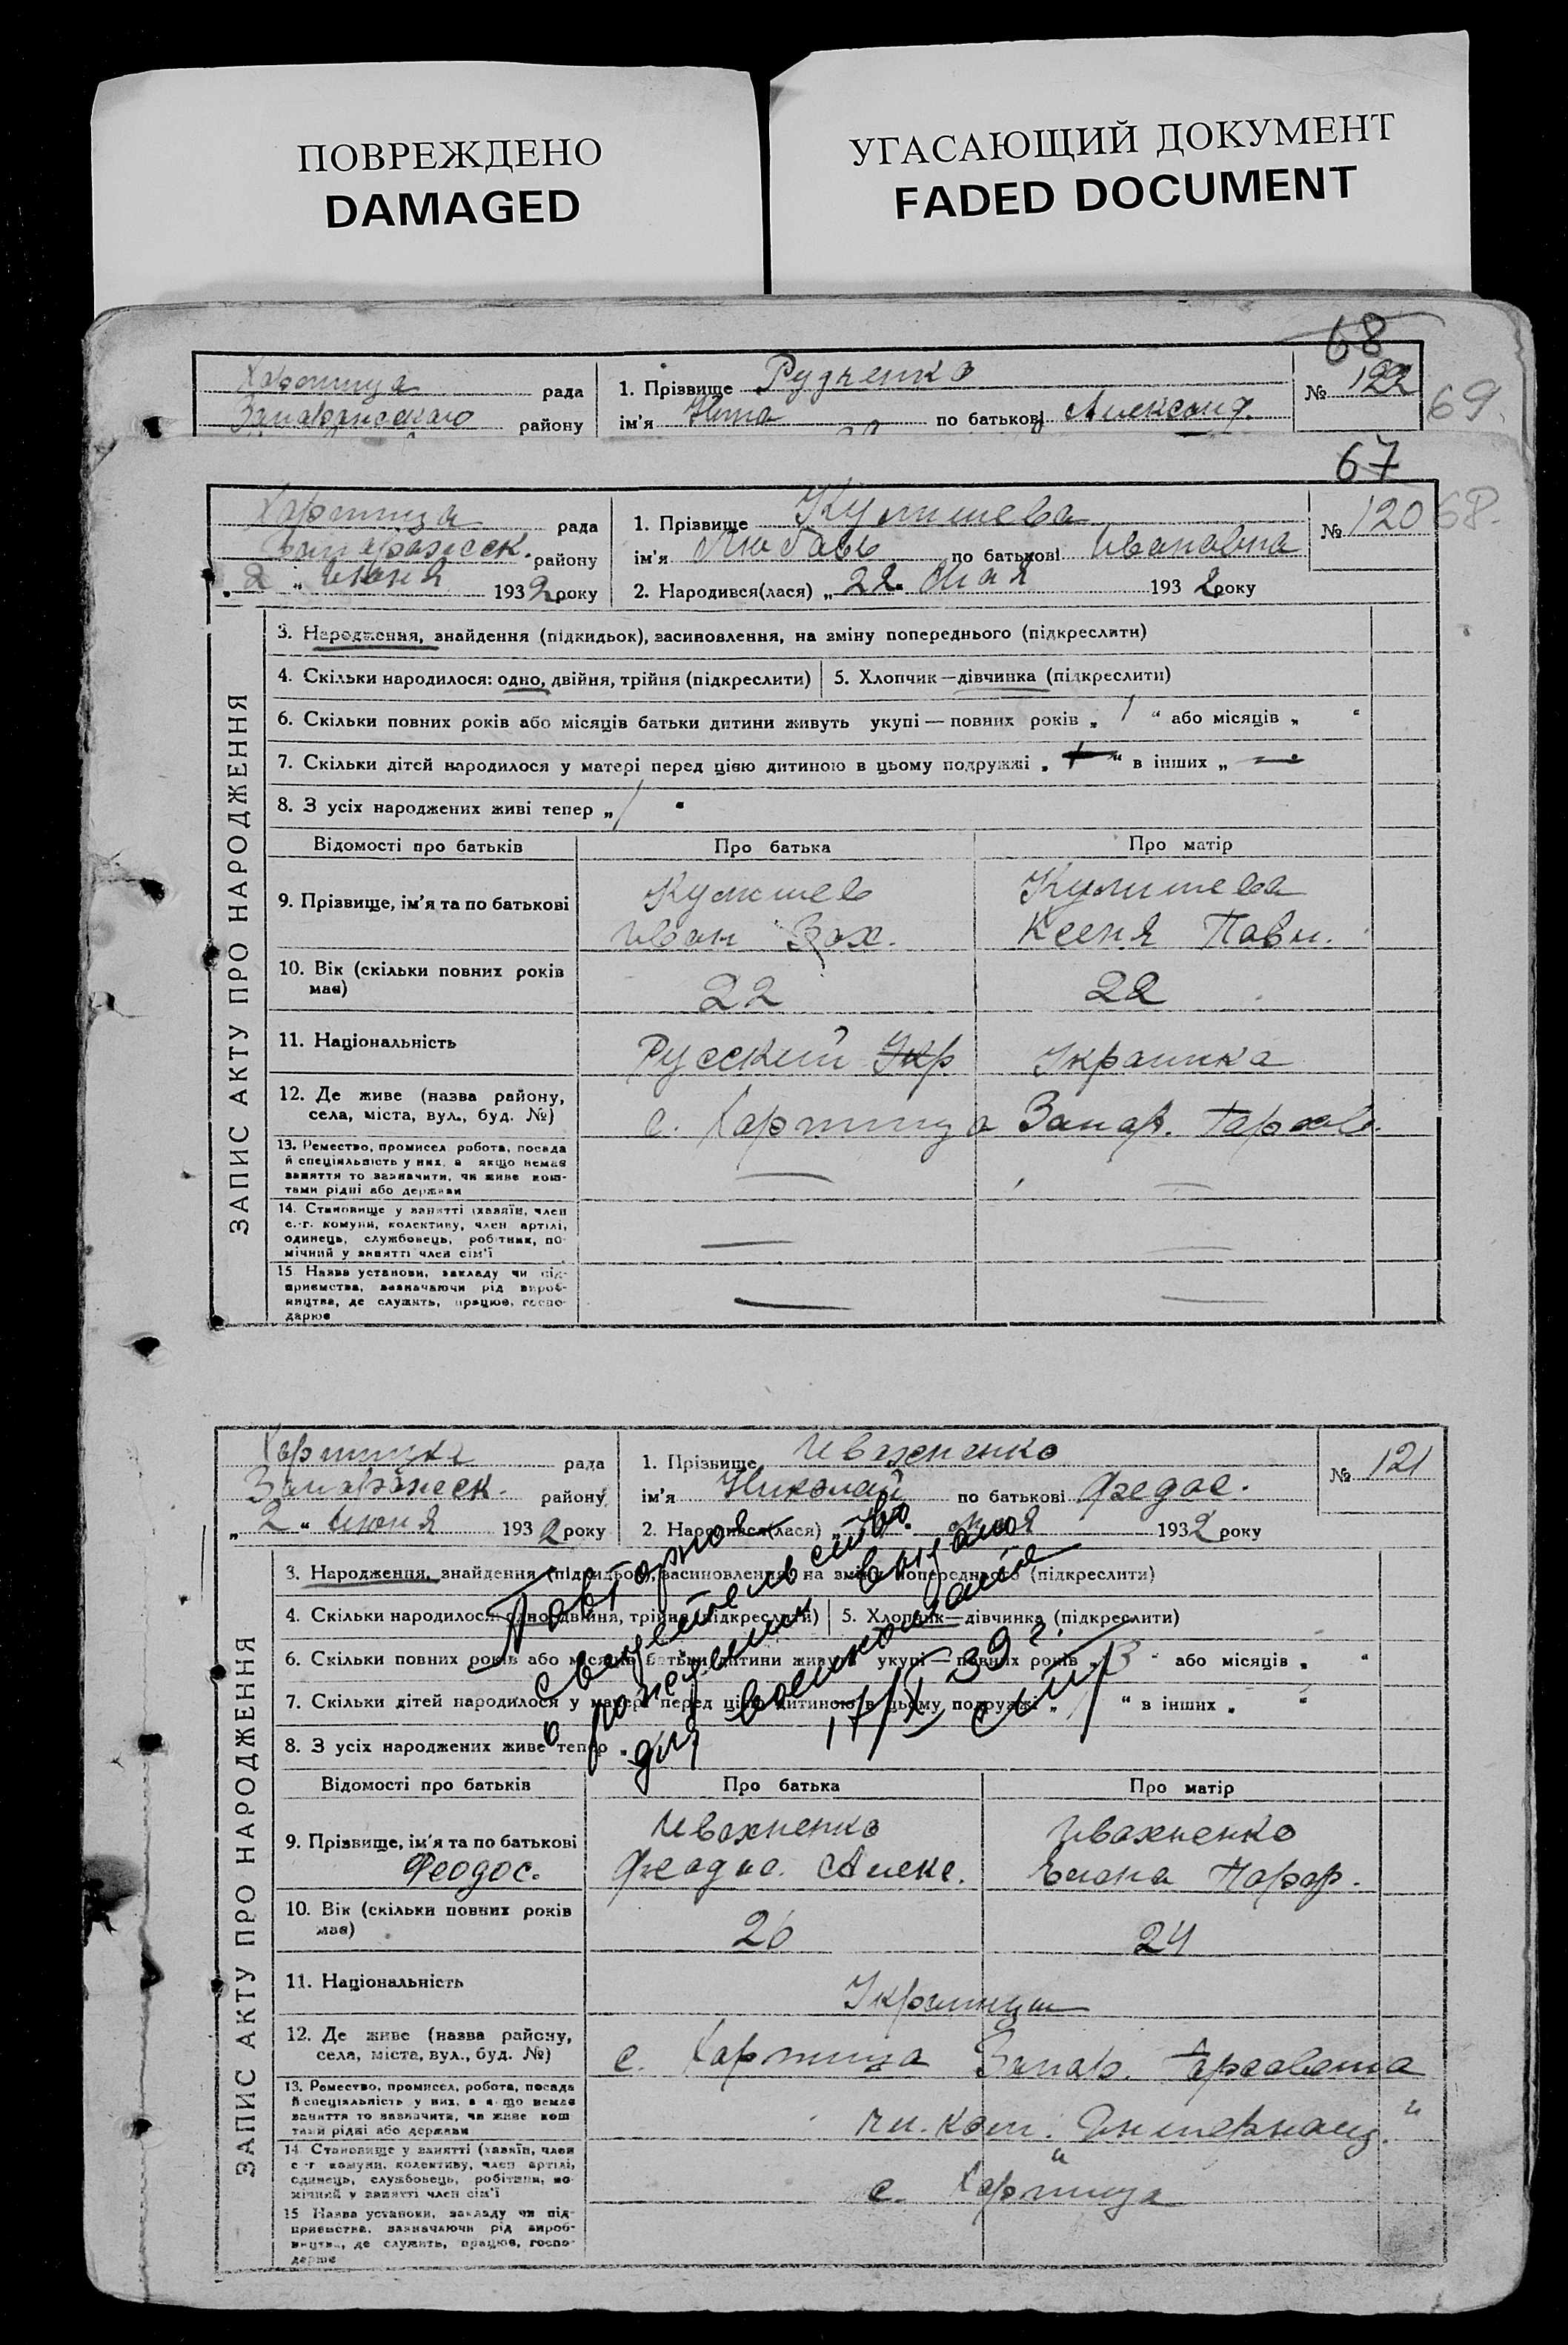 ПОВРЕЖДЕНО
DAMAGED
УГАСАЮЩИЙ ДОКУМЕНТ
FADED DOCUMENT
68
69
Хортица рада
1. Прізвище Рудченко
№ 122
району
ім'я по батькові Александ.
67
68
Хортица рада
1. Прізвище
№ 120
району
ім'я Любовь по батькові Ивановна
2 " Июня 1932 року
2. Народився(лася) „ 22 " мая 1932 року
ЗАПИС АКТУ ПРО НАРОДЖЕННЯ
3. Народження, знайдення (підкидьок), засиновлення, на зміну попереднього (підкреслити)
4. Скільки народилося: одно, двійня, трійня (підкреслити)
5. Хлопчик—дівчинка (підкреслити)
6. Скільки повних років або місяців батьки дитини живуть укупі — повних років „ 1 " або місяців „ "
7. Скільки дітей народилося у матері перед цією дитиною в цьому подружжі „ " в інших „ — "
8. З усіх народжених живі тепер „ 1 "
Відомості про батьків
Про батька
Про матір
9. Прізвище, ім'я та по батькові
Иван Зах.
Ксеня Павл.
10. Вік (скільки повних років має)
22
22
11. Національність
Русский Укр
Украинка
12. Де живе (назва району, села, міста, вул., буд. №)
с. Хортица Запор. Горсов.
13. Ремество, промисел робота, посада
й спеціяльність у них, а якщо немає
заняття то зазначити, чи живе кош-
тами рідні або держави
14. Становище у занятті (хазяїн, член
с.-г. комуни, колективу, член артілі,
одинець, службовець, робітник, по-
мічний у занятті член сім'ї
15 Назва установи, закладу чи під-
приємства, зазначаючи рід вироб-
ництва, де служить, працює, госпо-
дарює
рада
1. Прізвище Ивахненко
№ 121
району
ім'я Николай по батькові Федос.
„ 2 " Июня 1932 року
2. Народився(лася) „ мая 1932 року
ЗАПИС АКТУ ПРО НАРОДЖЕННЯ
3. Народження, знайдення (підкидьок), засиновлення, на зміну попереднього (підкреслити)
4. Скільки народилося: одно, двійня, трійня (підкреслити)
5. Хлопчик—дівчинка (підкреслити)
6. Скільки повних років або місяців батьки дитини живуть укупі — повних років „ 3 " або місяців „ "
7. Скільки дітей народилося у матері перед цією дитиною в цьому подружжі „ " в інших „ "
8. З усіх народжених живе тепер „
Повторное
свидетельство
о рождении выдано
для
17/X 39 г.
Відомості про батьків
Про батька
Про матір
9. Прізвище, ім'я та по батькові
Феодос.
Ивахненко
Алекс.
Ивахненко
Елена
10. Вік (скільки повних років має)
26
24
11. Національність
Украинцы
12. Де живе (назва району,
села, міста, вул., буд. №)
с. Хортица Запор. Горсовета
13. Ремество, промисел, робота, посада
й спеціяльність у них, а якщо немає
заняття то зазначити, чи живе кош
тами рідні або держави
чл. кол. "Интернац."
14 Становище у занятті (хазяїн, член
с-г комуни, колективу, член артілі,
одинець, службовець, робітник, по-
мічний у занятті член сім'ї
с. Хортица
15 Назва установи, закладу чи під-
приємства, зазначаючи рід вироб-
ництва, де служить, працює, госпо-
дарює